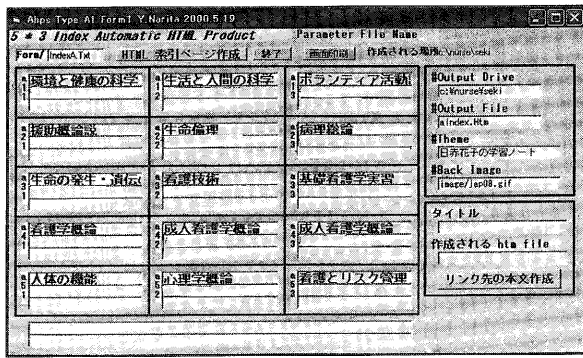 Ahps Type A1 Form1 Y.Narita 2000.5.19
5 * 3 Index Automatic HTML Product
Parameter File Name
Form/ IndexA.Txt
HTML 索引ページ作成
終了
画面印刷
作成される場所c:\nurse\seki
a11 環境と健康の科学
a12 生活と人間の科学
a13 ボランティア活動
a21 援助概論説
a22 生命倫理
a23 病理総論
a31 生命の発生・遺伝
a32 看護技術
a33 基礎看護学実習
a41 看護学概論
a42 成人看護学概論
a43 成人看護学概論
a51 人体の機能
a52 心理学概論
a53 看護とリスク管理
#Output Drive
c:¥nurse¥seki
#Output File
aindex.Htm
#Theme
日赤花子の学習ノート
#Back Image
image/jap08.gif
タイトル
作成される htm file
リンク先の本文作成